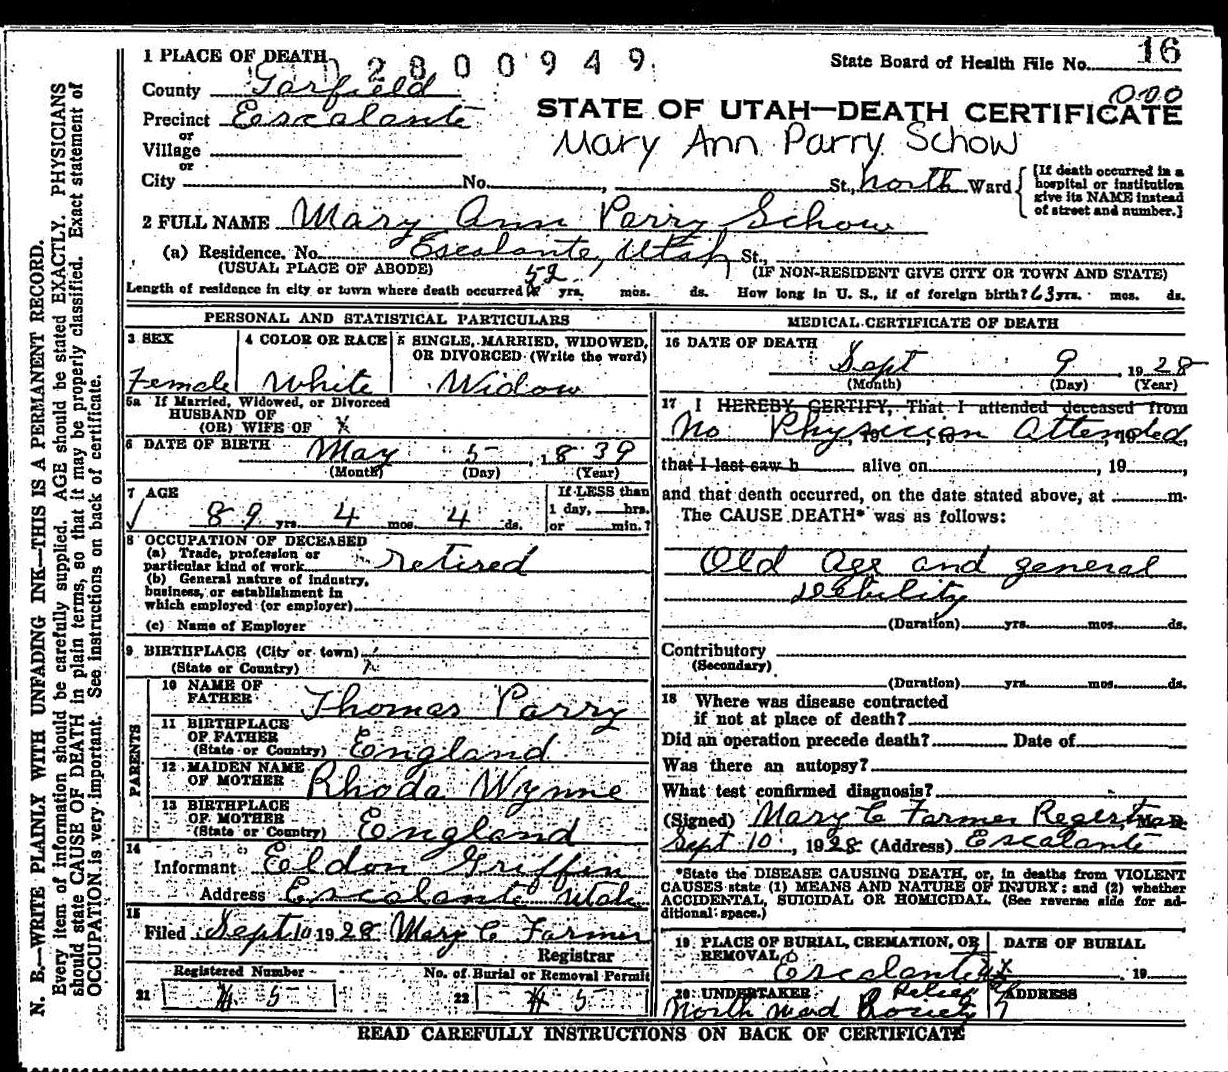 1 PLACE OF DEATH 2800949 State Board of Health File No. 16
County Garfield 000
STATE OF UTAH—DEATH CERTIFICATE
Precinct Escalante
or
Mary Ann Parry Schow
Village
or
City No. St., North Ward {[If death occurred in a hospital or institution give its NAME instead of street and number.]
2 FULL NAME Mary Ann Parry Schow
(a) Residence. No. Escalante, Utah St.,
(USUAL PLACE OF ABODE) (IF NON-RESIDENT GIVE CITY OR TOWN AND STATE)
Length of residence in city or town where death occurred 52 yrs. mos. ds. How long in U. S., if of foreign birth? 63 yrs. mos. ds.
PERSONAL AND STATISTICAL PARTICULARS
3 SEX
Female
4 COLOR OR RACE
White
5 SINGLE, MARRIED, WIDOWED,
OR DIVORCED (Write the word)
Widow
5a If Married, Widowed, or Divorced
HUSBAND OF
(OR) WIFE OF X
6 DATE OF BIRTH May 5, 1839
(Month) (Day) (Year)
7 AGE
89 yrs. 4 mos. 4 ds.
If LESS than
1 day, hrs.
or min.?
8 OCCUPATION OF DECEASED
(a) Trade, profession or
particular kind of work retired
(b) General nature of industry,
business, or establishment in
which employed (or employer)
(c) Name of Employer
9 BIRTHPLACE (City or town)
(State or Country)
PARENTS
10 NAME OF
FATHER Thomas Parry
11 BIRTHPLACE
OF FATHER
(State or Country) England
12 MAIDEN NAME
OF MOTHER Rhoda Wynne
13 BIRTHPLACE
OF MOTHER
(State or Country) England
14
Informant Eeldon Griffin
Address Escalante Utah
15
Filed Sept 10 1928 Mary C Farmer
Registrar
Registered Number No. of Burial or Removal Permit
21 5 22 5
MEDICAL CERTIFICATE OF DEATH
16 DATE OF DEATH
Sept 9, 1928
(Month) (Day) (Year)
17 I HEREBY CERTIFY, That I attended deceased from
No Physician Attended,
that I last saw h alive on , 19 ,
and that death occurred, on the date stated above, at m.
The CAUSE DEATH* was as follows:
Old Age and general
debility
(Duration) yrs. mos. ds.
Contributory
(Secondary)
(Duration) yrs. mos. ds.
18 Where was disease contracted
if not at place of death?
Did an operation precede death? Date of
Was there an autopsy?
What test confirmed diagnosis?
(Signed) Mary C Farmer Registrar M. D.
Sept 10, 1928 (Address) Escalante
*State the DISEASE CAUSING DEATH, or, in deaths from VIOLENT
CAUSES state (1) MEANS AND NATURE OF INJURY; and (2) whether
ACCIDENTAL, SUICIDAL OR HOMICIDAL. (See reverse side for ad-
ditional space.)
19 PLACE OF BURIAL, CREMATION, OR
REMOVAL
Escalante
DATE OF BURIAL
19
20 UNDERTAKER Relief
North Ward Society
ADDRESS
READ CAREFULLY INSTRUCTIONS ON BACK OF CERTIFICATE
N. B.—WRITE PLAINLY WITH UNFADING INK—THIS IS A PERMANENT RECORD.
Every item of information should be carefully supplied. AGE should be stated EXACTLY. PHYSICIANS
should state CAUSE OF DEATH in plain terms, so that it may be properly classified. Exact statement of
OCCUPATION is very important. See instructions on back of certificate.